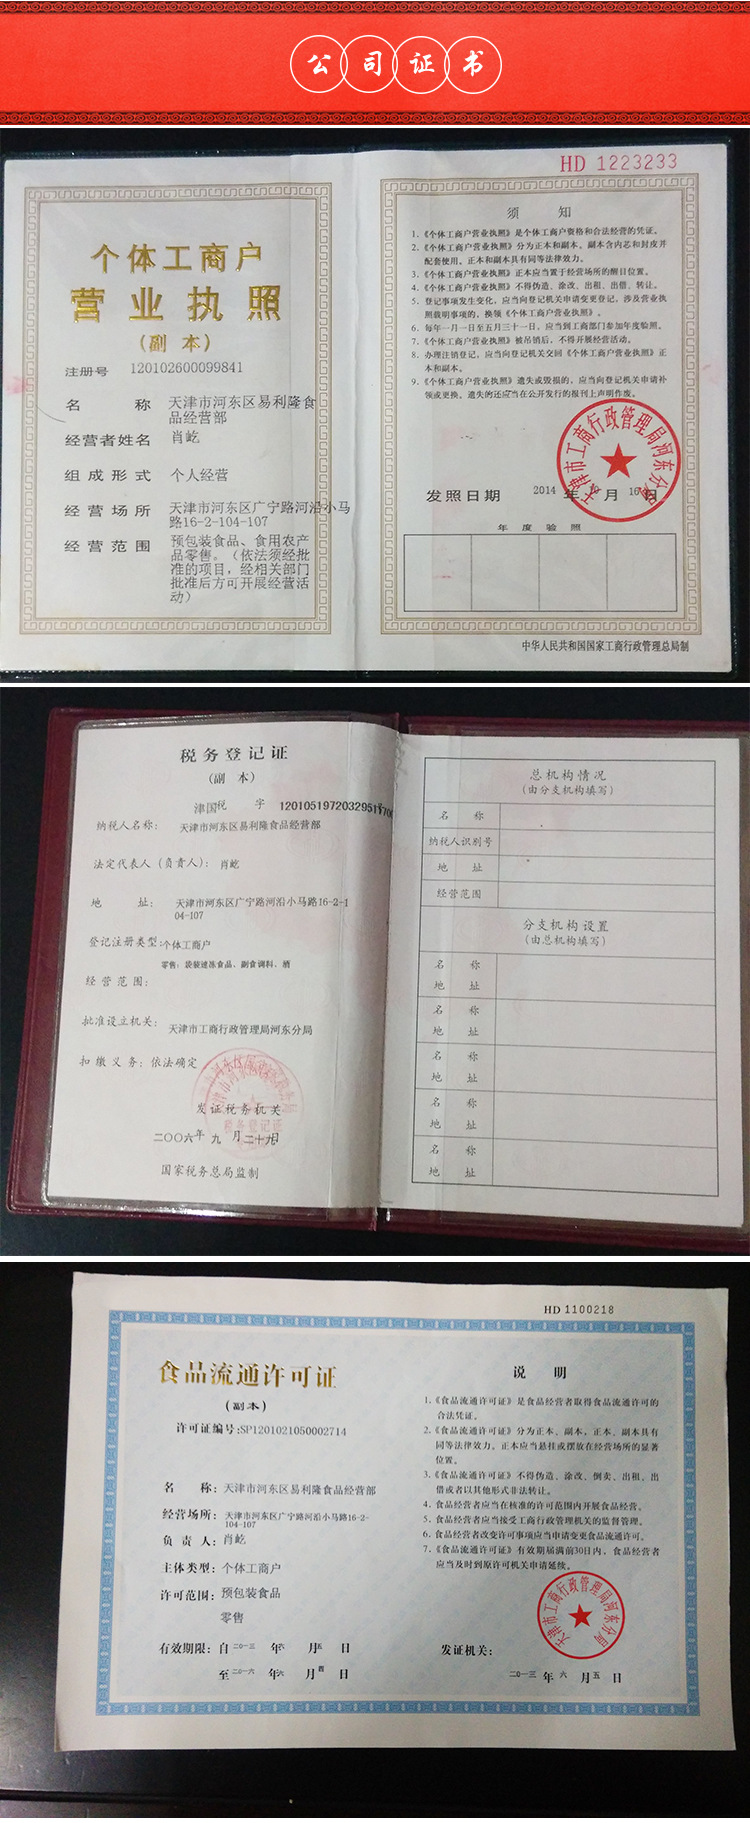 公司证书
HD 1223233
个体工商户
营业执照
(副本)
注册号 120102600099841
名 称 天津市河东区易利隆食
品经营部
经营者姓名 肖屹
组成形式 个人经营
经营场所 天津市河东区广宁路河沿小马
路16-2-104-107
经营范围 预包装食品、食用农产
品零售。（依法须经批
准的项目，经相关部门
批准后方可开展经营活
动）
须 知
1.《个体工商户营业执照》是个体工商户资格和合法经营的凭证。
2.《个体工商户营业执照》分为正本和副本。副本含内芯和封皮并
配套使用。正本和副本具有同等法律效力。
3.《个体工商户营业执照》正本应当置于经营场所的醒目位置。
4.《个体工商户营业执照》不得伪造、涂改、出租、出借、转让。
5. 登记事项发生变化，应当向登记机关申请变更登记，涉及营业执
照载明事项的，换领《个体工商户营业执照》。
6. 每年一月一日至五月三十一日，应当到工商部门参加年度验照。
7.《个体工商户营业执照》被吊销后，不得开展经营活动。
8. 办理注销登记，应当向登记机关交回《个体工商户营业执照》正
本和副本。
9.《个体工商户营业执照》遗失或毁损的，应当向登记机关申请补
领或更换。遗失的还应当在公开发行的报刊上声明作废。
天津市工商行政管理局河东分局
发照日期 2014 年 月 16 日
年度验照
中华人民共和国国家工商行政管理总局制
税务登记证
(副 本)
津国税 字 120105197203295117
纳税人名称： 天津市河东区易利隆食品经营部
法定代表人（负责人）： 肖屹
地 址： 天津市河东区广宁路河沿小马路16-2-1
04-107
登记注册类型：个体工商户
零售：袋装速冻食品、副食调料、酒
经营范围：
批准设立机关： 天津市工商行政管理局河东分局
扣缴义务：依法确定
税务登记证
发证税务机关
二〇〇六年 九 月 二十九日
国家税务总局监制
总机构情况
(由分支机构填写)
名 称
纳税人识别号
地 址
经营范围
分支机构设置
(由总机构填写)
名 称
地 址
名 称
地 址
名 称
地 址
名 称
地 址
名 称
地 址
HD 1100218
食品流通许可证
(副本)
许可证编号:SP1201021050002714
名 称： 天津市河东区易利隆食品经营部
经营场所： 天津市河东区广宁路河沿小马路16-2-
104-107
负责人： 肖屹
主体类型： 个体工商户
许可范围： 预包装食品
零售
有效期限： 自 二〇一三 年 六 月 五 日
至 二〇一六 年 六 月 四 日
说 明
1.《食品流通许可证》是食品经营者取得食品流通许可的
合法凭证。
2.《食品流通许可证》分为正本、副本，正本、副本具有
同等法律效力。正本应当悬挂或摆放在经营场所的显著
位置。
3.《食品流通许可证》不得伪造、涂改、倒卖、出租、出
借或者以其他形式非法转让。
4. 食品经营者应当在核准的许可范围内开展食品经营。
5. 食品经营者应当接受工商行政管理机关的监督管理。
6. 食品经营者改变许可事项应当申请变更食品流通许可。
7.《食品流通许可证》有效期届满前30日内，食品经营者
应当及时到原许可机关申请延续。
天津市工商行政管理局河东分局
发证机关：
二〇一三 年 六 月 五 日